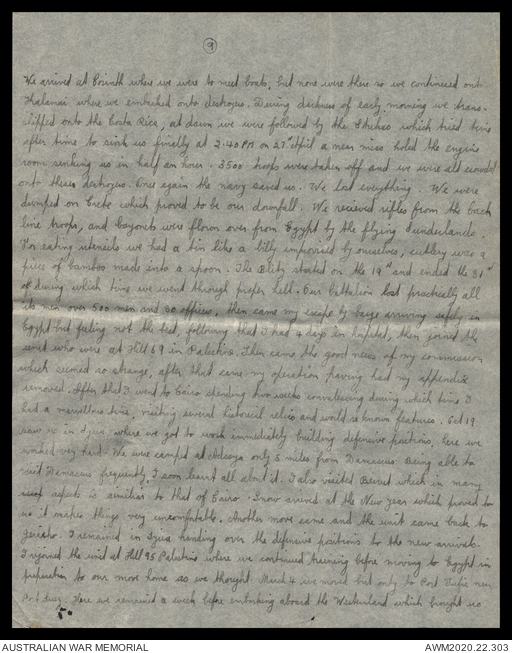 9
We arrived at Corinth where we were to meet boats, but none were there so we continued onto
Kalamai where we embarked onto destroyers. During darkness of early morning we trans-
shipped onto the Costa Rica, at dawn we were followed by the Stukas which tried time
after time to sink us finally at 2.40 PM on 27th April a near miss holed the engine
room sinking us in half an hour. 3500 troops were taken off and we were all crowded
onto three destroyers. Once again the navy saved us. We lost everything. We were
dumped on Crete which proved to be our downfall. We recieved rifles from the back
line troops, and bayonets were flown over from Egypt by the flying Sunderlands.
For eating utensils we had a tin like a billy improvised by ourselves, cutlery was a
piece of bamboo made into a spoon. The Blitz started on the 19th and ended the 31st
of during which time we went through proper hell. Our battalion lost practically all
its men over 500 men and 30 officers, then came my escape by barge arriving safely in
Egypt but feeling not the best, following that I had 4 days in hospital, then joined the
unit who were at Hill 69 in Palestine. Then came the good news of my commission
which seemed so strange, after that came my operation having had my appendix
removed. After that I went to Cairo spending two weeks convalescing during which time I
had a marvellous time, visiting several historical relics and world is known features. Oct 19
saw us in Syria where we got to work immediately building defensive positions, here we
worked very hard. We were camped at only 5 miles from Damascus. Being able to
visit Damascus frequently, I soon learnt all about it. I also visited Beirut which in many
aspects is similiar to that of Cairo. Snow arrived at the New Year which proved to
us it makes things very uncomfortable. Another move came and the unit came back to
Jericho. I remained in Syria handing over the defensive positions to the new arrivals.
I rejoined the unit at Hill 95 Palestine where we continued training before moving to Egypt in
preparation to our move home so we thought. March 4 we moved but only to Port Tufic near
Port Suez. Here we remained a week before embarking aboard the Westernland which brought us
AUSTRALIAN WAR MEMORIAL
AWM2020.22.303